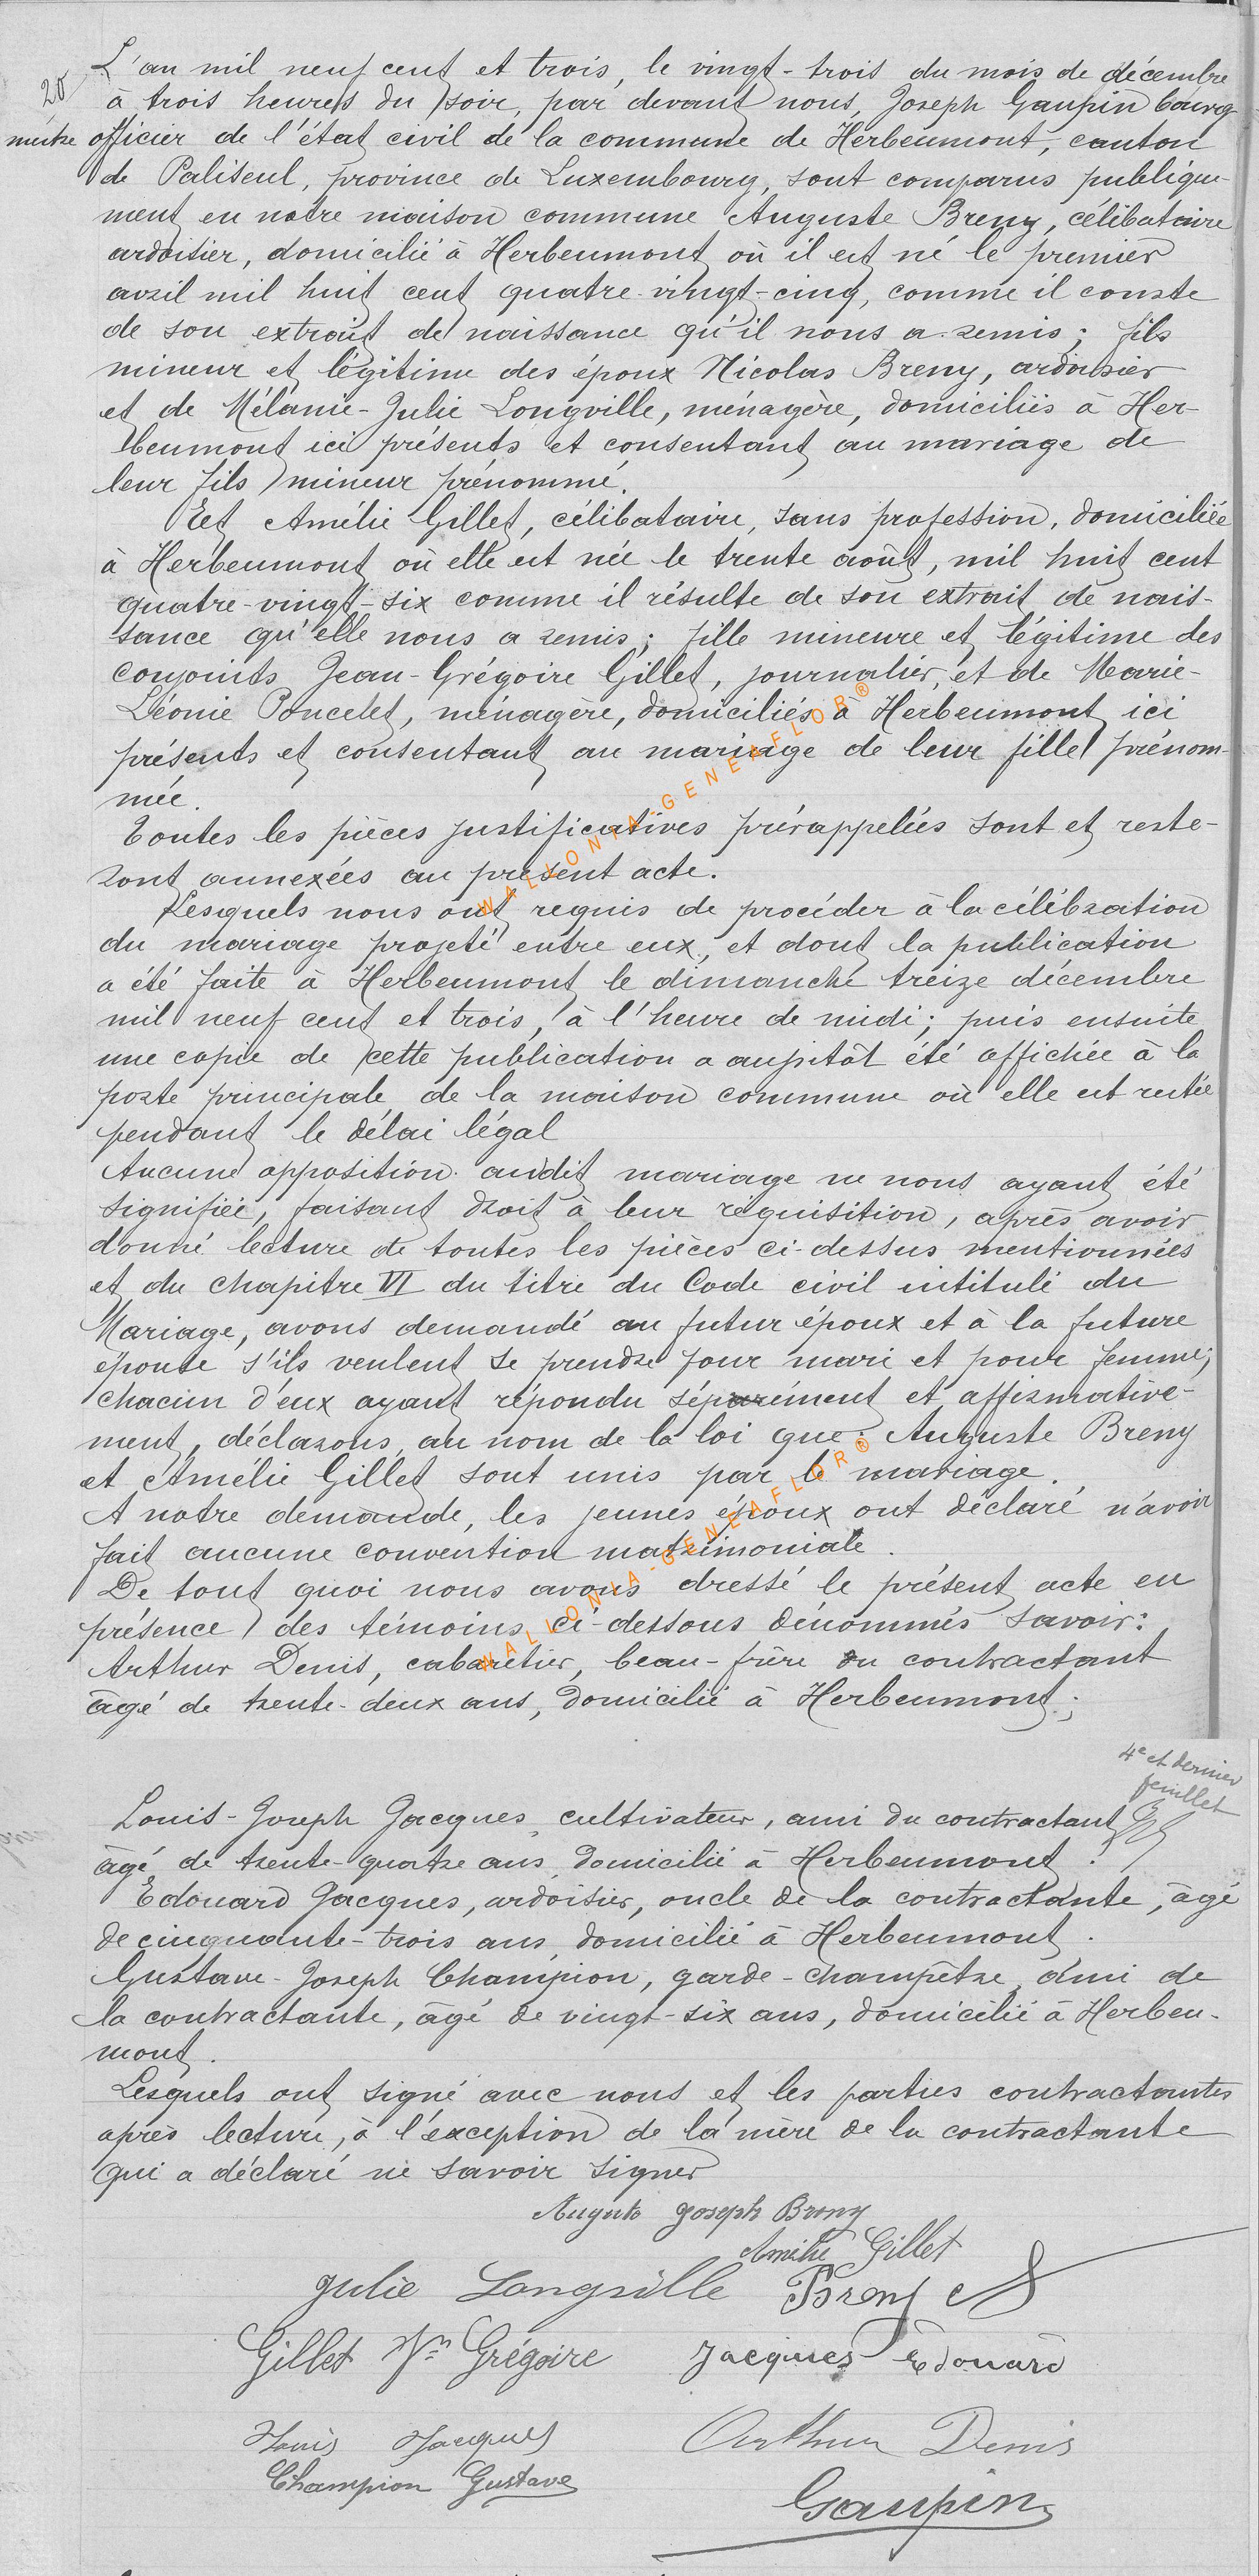 L'an mil neuf cent et trois, le vingt-trois du mois de décembre
20
à trois heures du soir, par devant nous, Joseph Gaupin bourg
mestre officier de l'état civil de la commune de Herbeumont, canton
de Paliseul, province de Luxembourg, sont comparus publique-
ment en notre maison commune Auguste Breny, célibataire
ardoisier, domicilié à Herbeumont où il est né le premier
avril mil huit cent quatre-vingt-cinq, comme il conste
de son extrait de naissance qu'il nous a remis ; fils
mineur et légitime des époux Nicolas Breny, ardoisier
et de Mélanie-Julie Longville, ménagère, domiciliés à Her-
beumont ici présents et consentant au mariage de
leur fils mineur prénommé.
Et Amélie Gillet, célibataire, sans profession, domiciliée
à Herbeumont où elle est née le trente août, mil huit cent
quatre-vingt-six comme il résulte de son extrait de nais-
sance qu'elle nous a remis ; fille mineure et légitime des
conjoints Jean-Grégoire Gillet, journalier, et de Marie-
Léonie Poncelet, ménagère, domiciliés à Herbeumont ici
présents et consentant au mariage de leur fille prénom-
mée.
Toutes les pièces justificatives prérappelées sont et reste-
ront annexées au présent acte.
Lesquels nous ont requis de procéder à la célébration
du mariage projeté entre eux, et dont la publication
a été faite à Herbeumont le dimanche treize décembre
mil neuf cent et trois, à l'heure de midi ; puis ensuite
une copie de cette publication a aussitôt été affichée à la
porte principale de la maison commune où elle est restée
pendant le délai légal
Aucune opposition audit mariage ne nous ayant été
signifiée, faisant droit à leur réquisition, après avoir
donné lecture de toutes les pièces ci-dessus mentionnées
et du chapitre VI du titre du Code civil intitulé du
Mariage, avons demandé au futur époux et à la future
épouse s'ils veulent se prendre pour mari et pour femme ;
chacun d'eux ayant répondu séparément et affirmative-
ment, déclarons, au nom de la loi que : Auguste Breny
et Amélie Gillet sont unis par le mariage.
A notre demande, les jeunes époux ont déclaré n'avoir
fait aucune convention matrimoniale.
De tout quoi nous avons dressé le présent acte en
présence des témoins ci-dessous dénommés savoir :
Arthur Denis, cabaretier, beau-frère du contractant
âgé de trente-deux ans, domicilié à Herbeumont ;
4e et dernier
feuillet
Louis-Joseph Jacques, cultivateur, ami du contractant
âgé de trente-quatre ans domicilié à Herbeumont.
Edouard Jacques, ardoisier, oncle de la contractante, âgé
de cinquante-trois ans, domicilié à Herbeumont.
Gustave-Joseph Champion, garde-champêtre, ami de
la contractante, âgé de vingt-six ans, domicilié à Herbeu-
mont.
Lesquels ont signé avec nous et les parties contractantes
après lecture, à l'exception de la mère de la contractante
qui a déclaré ne savoir signer
Auguste Joseph Breny
Amélie Gillet
Julie Longville Breny
Gillet Jn Grégoire Jacques Edouard
Louis Jacques Arthur Denis
Champion Gustave
Gaupin
WALLONIA-GENEAFLOR®
WALLONIA-GENEAFLOR®